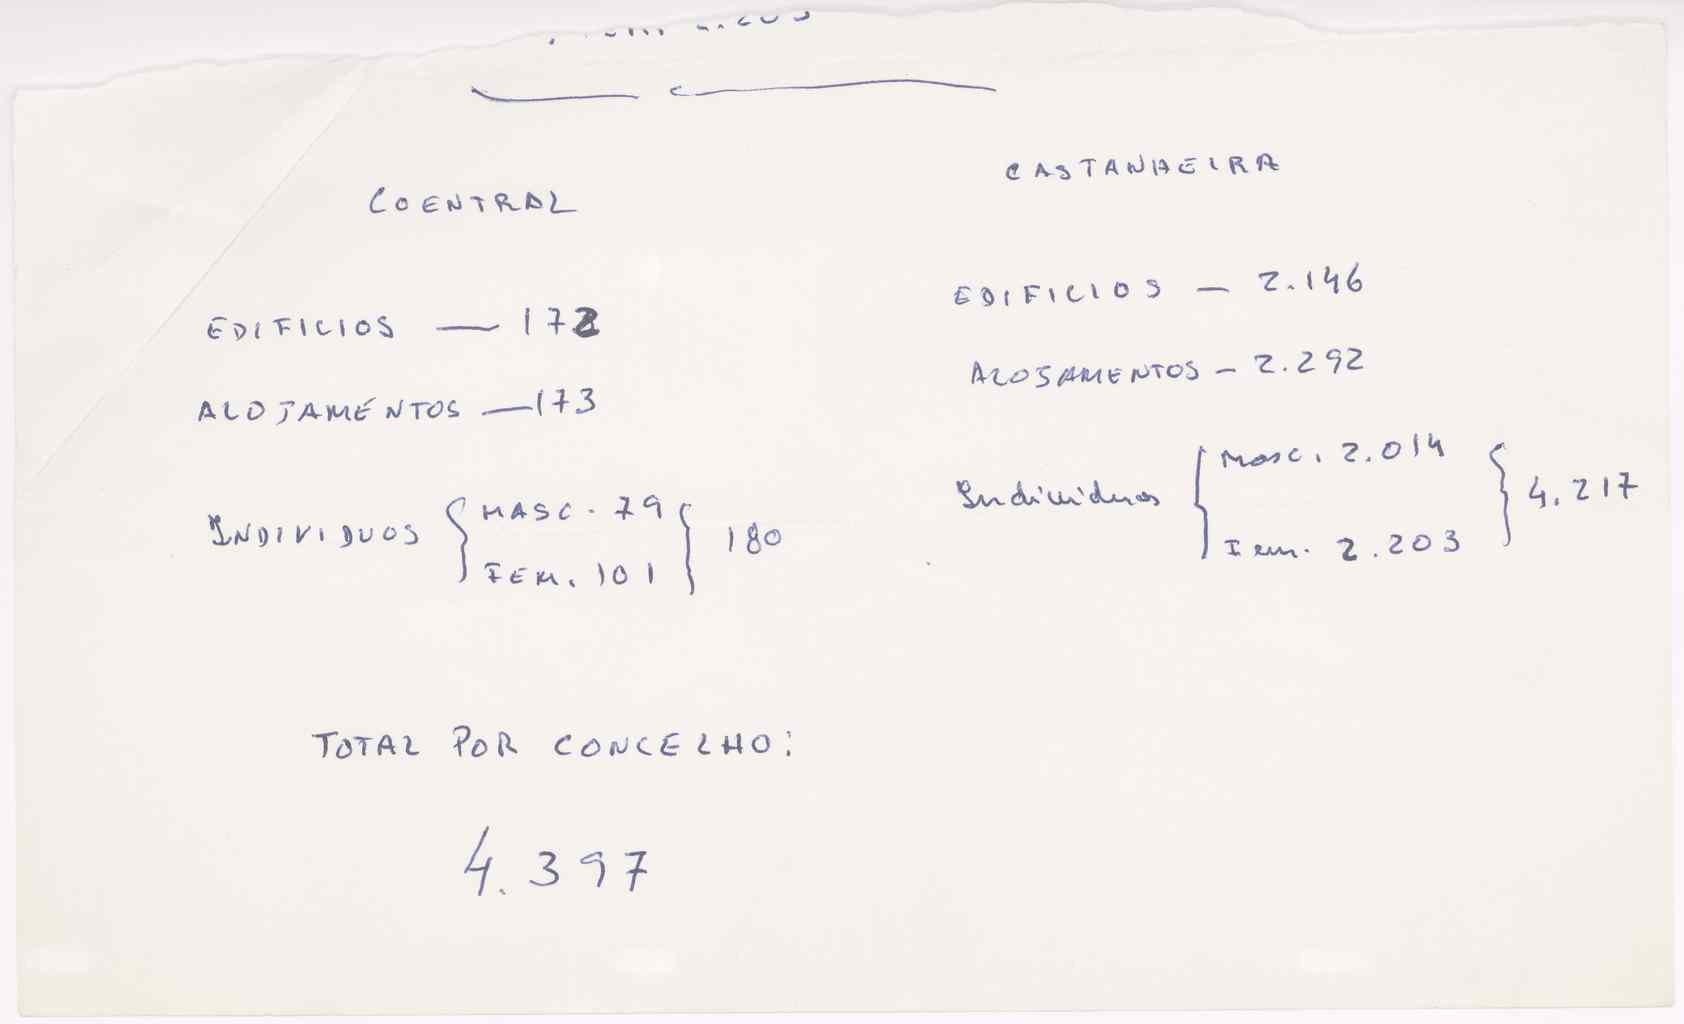 COENTRAL
EDIFICIOS — 172
ALOJAMENTOS — 173
INDIVIDUOS { MASC. 79
FEM. 101 } 180
CASTANHEIRA
EDIFICIOS — 2.146
ALOJAMENTOS — 2.292
Individuos { Masc. 2.014
Fem. 2.203 } 4.217
TOTAL POR CONCELHO:
4.397